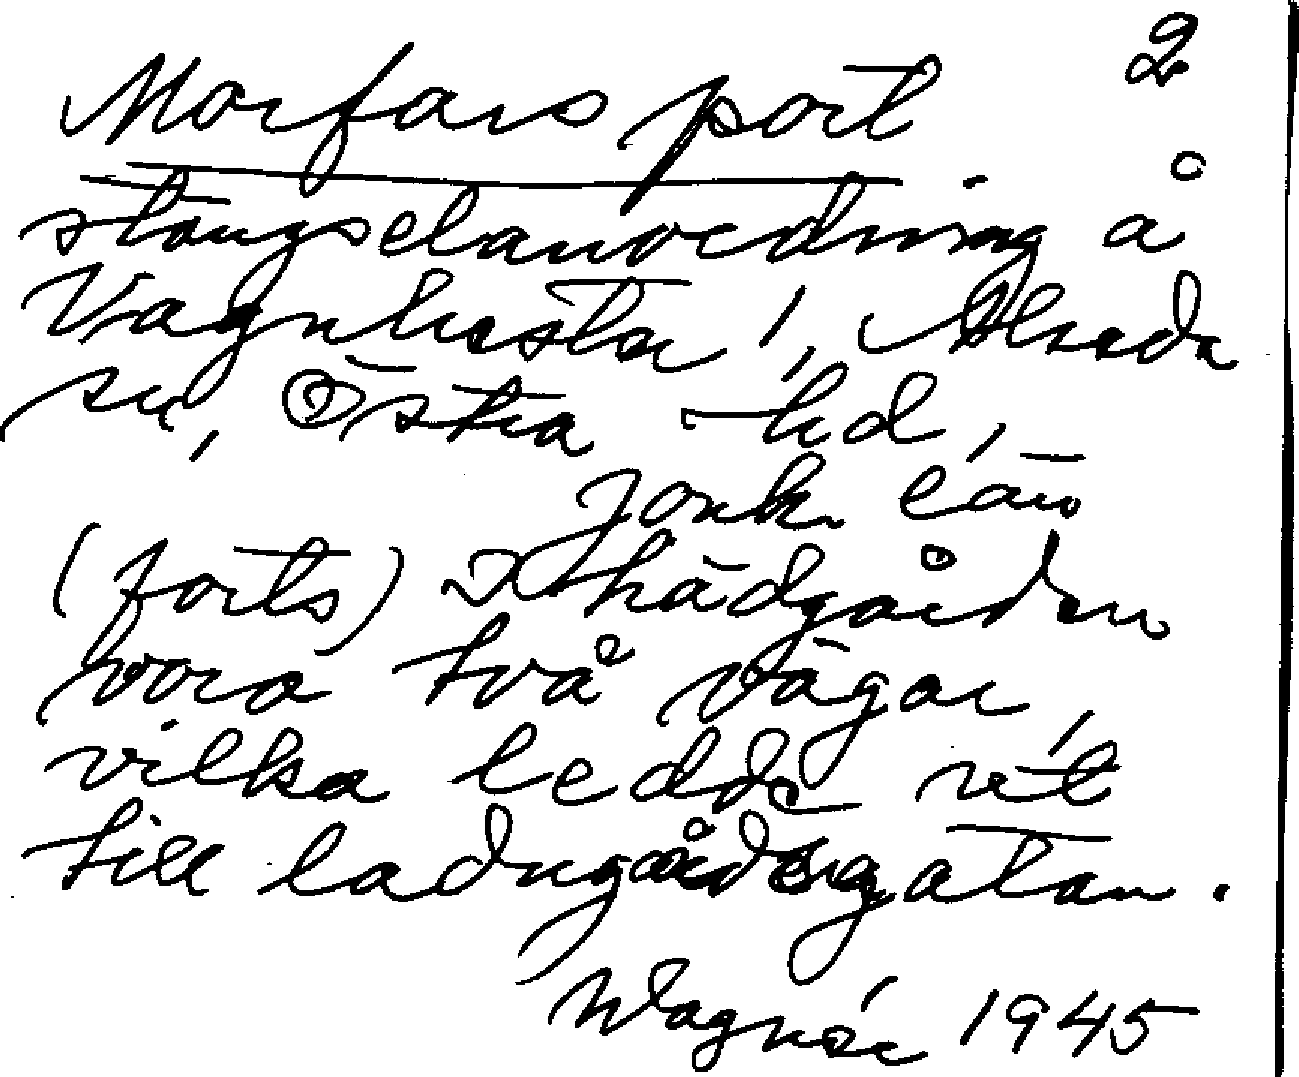 2
Morfars port
stängselanordning å
Vagnhester, Almeda
sn, Östra hd,
Jönk. län
(forts) I trädgården
voro två vägar,
vilka ledde ut
till ladugårdsgatan.
Wagnér 1945